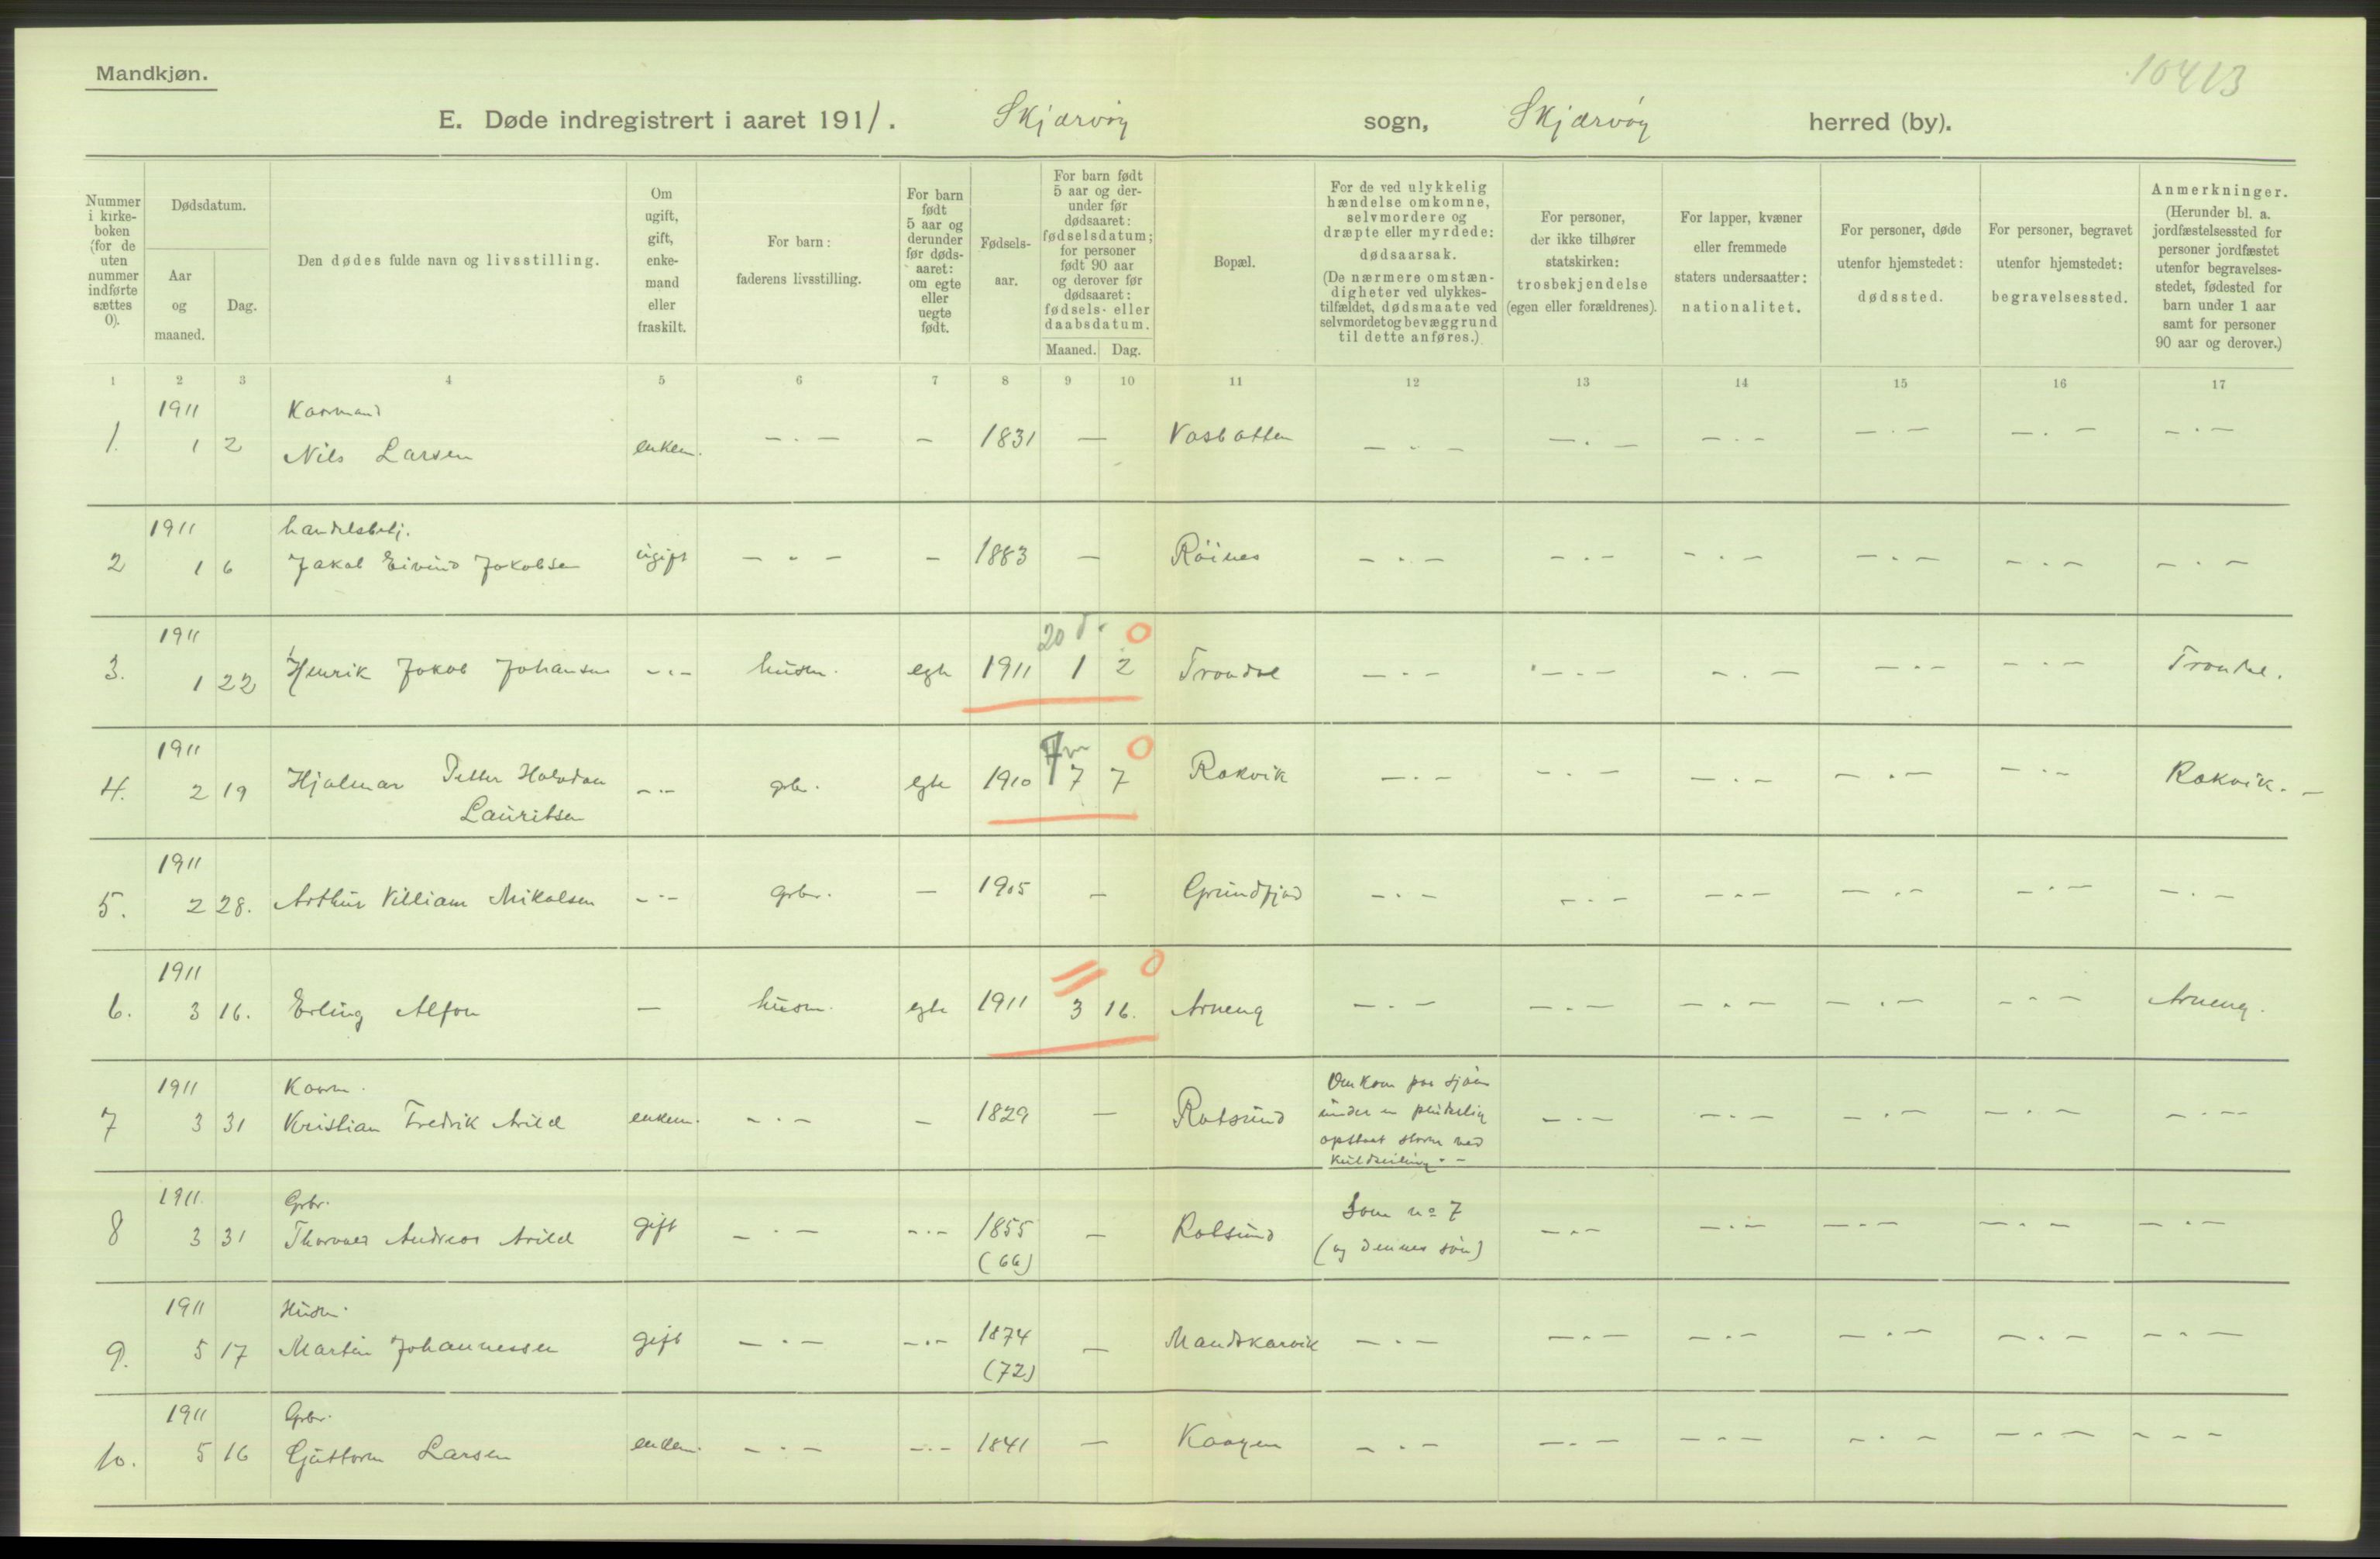 Mandkjøn.
10413
E. Døde indregistrert i aaret 1911. Skjærvöy sogn, Skjærvöy herred (by).
Nummer i kirke-boken (for de uten nummer indførte sættes 0).
Dødsdatum.
Aar og maaned.
Dag.
Den dødes fulde navn og livsstilling.
Om ugift, gift, enke-mand eller fraskilt.
For barn: faderens livsstilling.
For barn født 5 aar og derunder før døds-aaret: om egte eller uegte født.
Fødsels-aar.
For barn født 5 aar og der-under før dødsaaret: fødselsdatum; for personer født 90 aar og derover før dødsaaret: fødsels- eller daabsdatum.
Maaned. Dag.
Bopæl.
For de ved ulykkelig hændelse omkomne, selvmordere og dræpte eller myrdede: dødsaarsak.
(De nærmere omstæn-digheter ved ulykkes-tilfældet, dødsmaate ved selvmord et og bevæggrund til dette anføres.)
For personer, der ikke tilhører statskirken: trosbekjendelse (egen eller forældrenes).
For lapper, kvæner eller fremmede staters undersaatter: nationalitet.
For personer, døde utenfor hjemstedet: dødssted.
For personer, begravet utenfor hjemstedet: begravelsessted.
Anmerkninger.
(Herunder bl. a. jordfæstelsessted for personer jordfæstet utenfor begravelses-stedet, fødested for barn under 1 aar samt for personer 90 aar og derover.)
1 2 3 4 5 6 7 8 9 10 11 12 13 14 15 16 17
1911 Kaarmand
1. 1 2 Nils Larsen enkem. - . - - 1831 - Vasbotten - . - - . - - . - - . - - . - - . -
1911 handelsbetj.
2 1 6 Jakob Eivind Jakobsen ugift - . - - 1883 - Röines - . - - . - - . - - . - - . - - . -
1911 20 d. 0
3. 1 22 Henrik Jakob Johansen - . - husm. egte 1911 1 2 - . - - . - - . - - . - - . -
1911 7 m 0
4. 2 19 Hjalmar Petter Halvdan - . - gbr. egte 1910 7 7 Rakvik - . - - . - - . - - . - - . - Rakvik. -
Lauritsen
1911
5. 2 28. Arthur Villiam Mikalsen - . - grbr. - 1905 - Grundfjord - . - - . - - . - - . - - . - - . -
1911 0
6. 3 16. Erling Alfon - husm. egte 1911 3 16. Arneng - . - - . - - . - - . - - . - Arneng.
1911 Kaarm. Omkom paa sjöen
7 3 31 Kristian Fredrik Arild enkem. - . - - 1829 - Rotsund under en pludselig - . - - . - - . - - . - - . -
opstaaet storm ved
kuldseiling. -
1911. Grbr. Som no 7
8 3 31 Thorvald Andreas Arild gift - . - - . - 1855 - Rotsund (og dennes sön) - . - - . - - . - - . - - . -
(66)
1911 Husm.
9. 5 17 Martin Johannessen gift - . - - . - 1874 - Mandskarvik - . - - . - - . - - . - - . - - . -
(72)
1911 Grbr.
10. 5 16 Guttorm Larsen enkem. - . - - . - 1841 - Kaagen - . - - . - - . - - . - - . - - - -